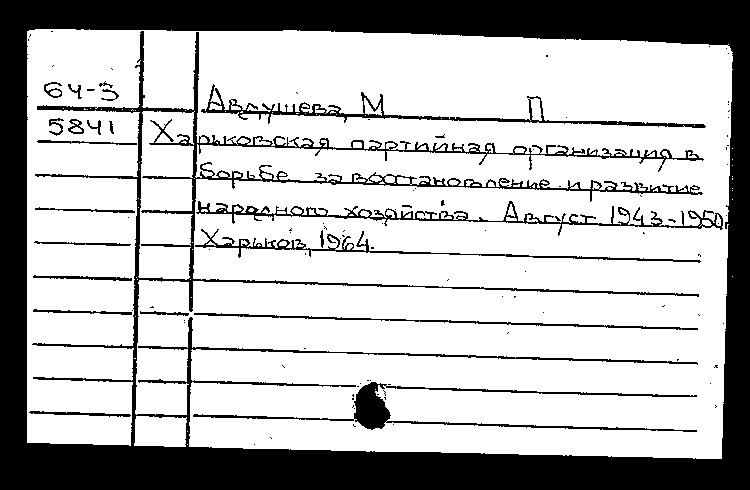 64-3
Авдушева, М П
5841 Харьковская партийная организация в
борьбе за восстановление и развитие
народного хозяйства. Август 1943-1950г.
Харьков, 1964.